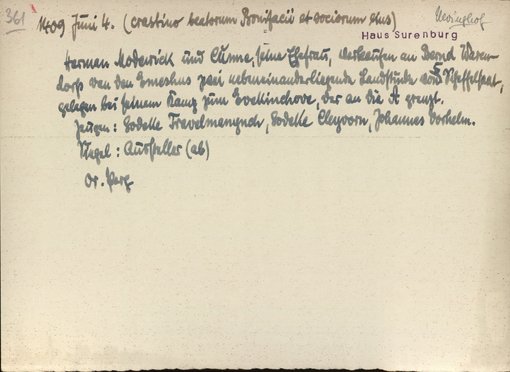 361
1409 Juni 4. (crastino beatorum Bonifacii et sociorum eius)
Haus Surenburg
Herman Moderick und Cunne, seine Ehefrau, verkaufen an Bernd Waren-
dorp van den Emeshus zwei nebeneinanderliegende Landstücke von 5 Scheffelsaat,
gelegen bei seinem Kamp zum Evekinchove, der an die A grenzt.
Zeugen: Godeke Travelmanynch, Godeke Cleyvorn, Johannes
Siegel: Aussteller (ab)
Or. Perg